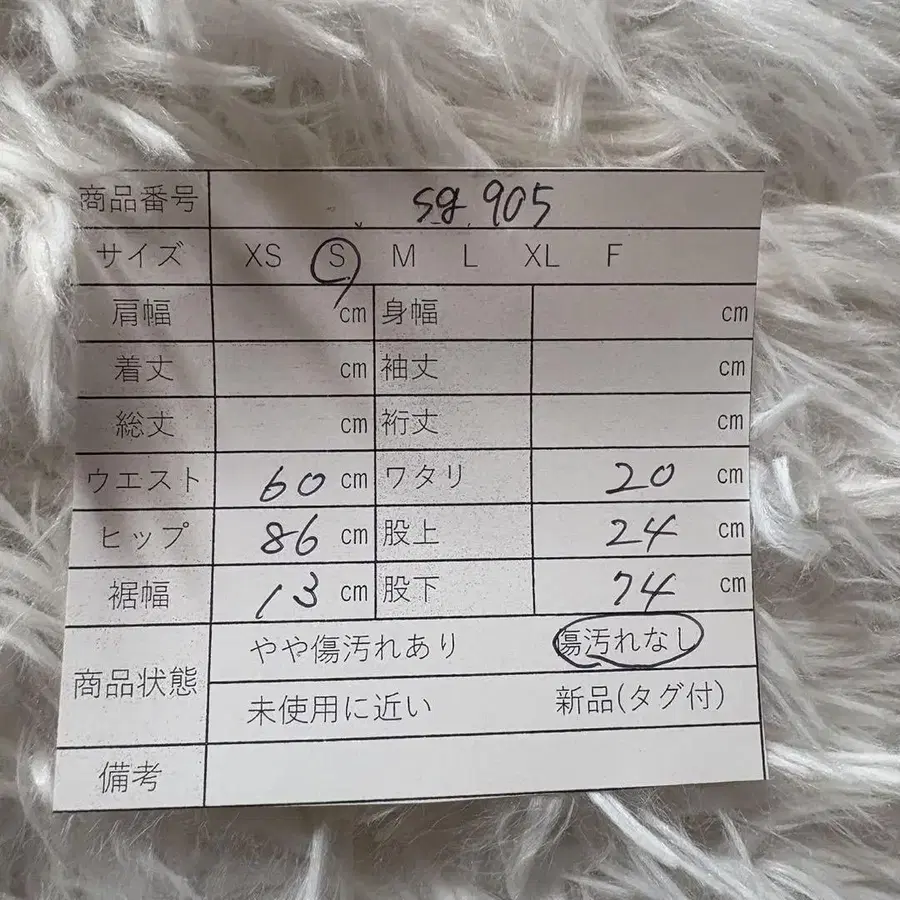 商品番号 sg 905
サイズ XS S M L XL F
肩幅 cm 身幅 cm
着丈 cm 袖丈 cm
総丈 cm 裄丈 cm
ウエスト 60 cm ワタリ 20 cm
ヒップ 86 cm 股上 24 cm
裾幅 13 cm 股下 74 cm
商品状態 やや傷汚れあり 傷汚れなし
未使用に近い 新品(タグ付)
備考